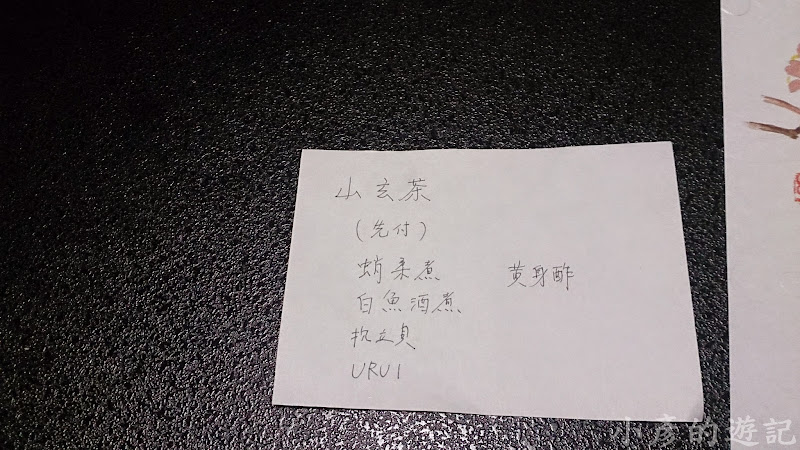 山玄茶
(先付)
蛸柔煮 黄身酢
白魚酒煮
帆立貝
URUI
小彥的遊記